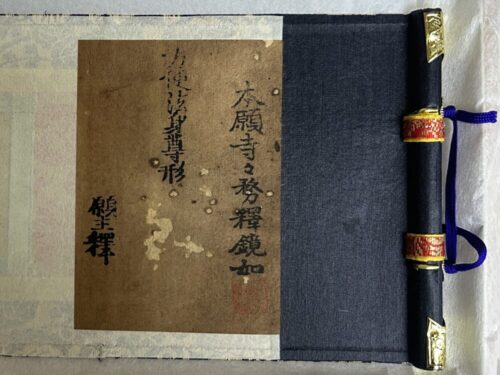 本願寺々務釋鏡如
方便法身尊形
願主釋